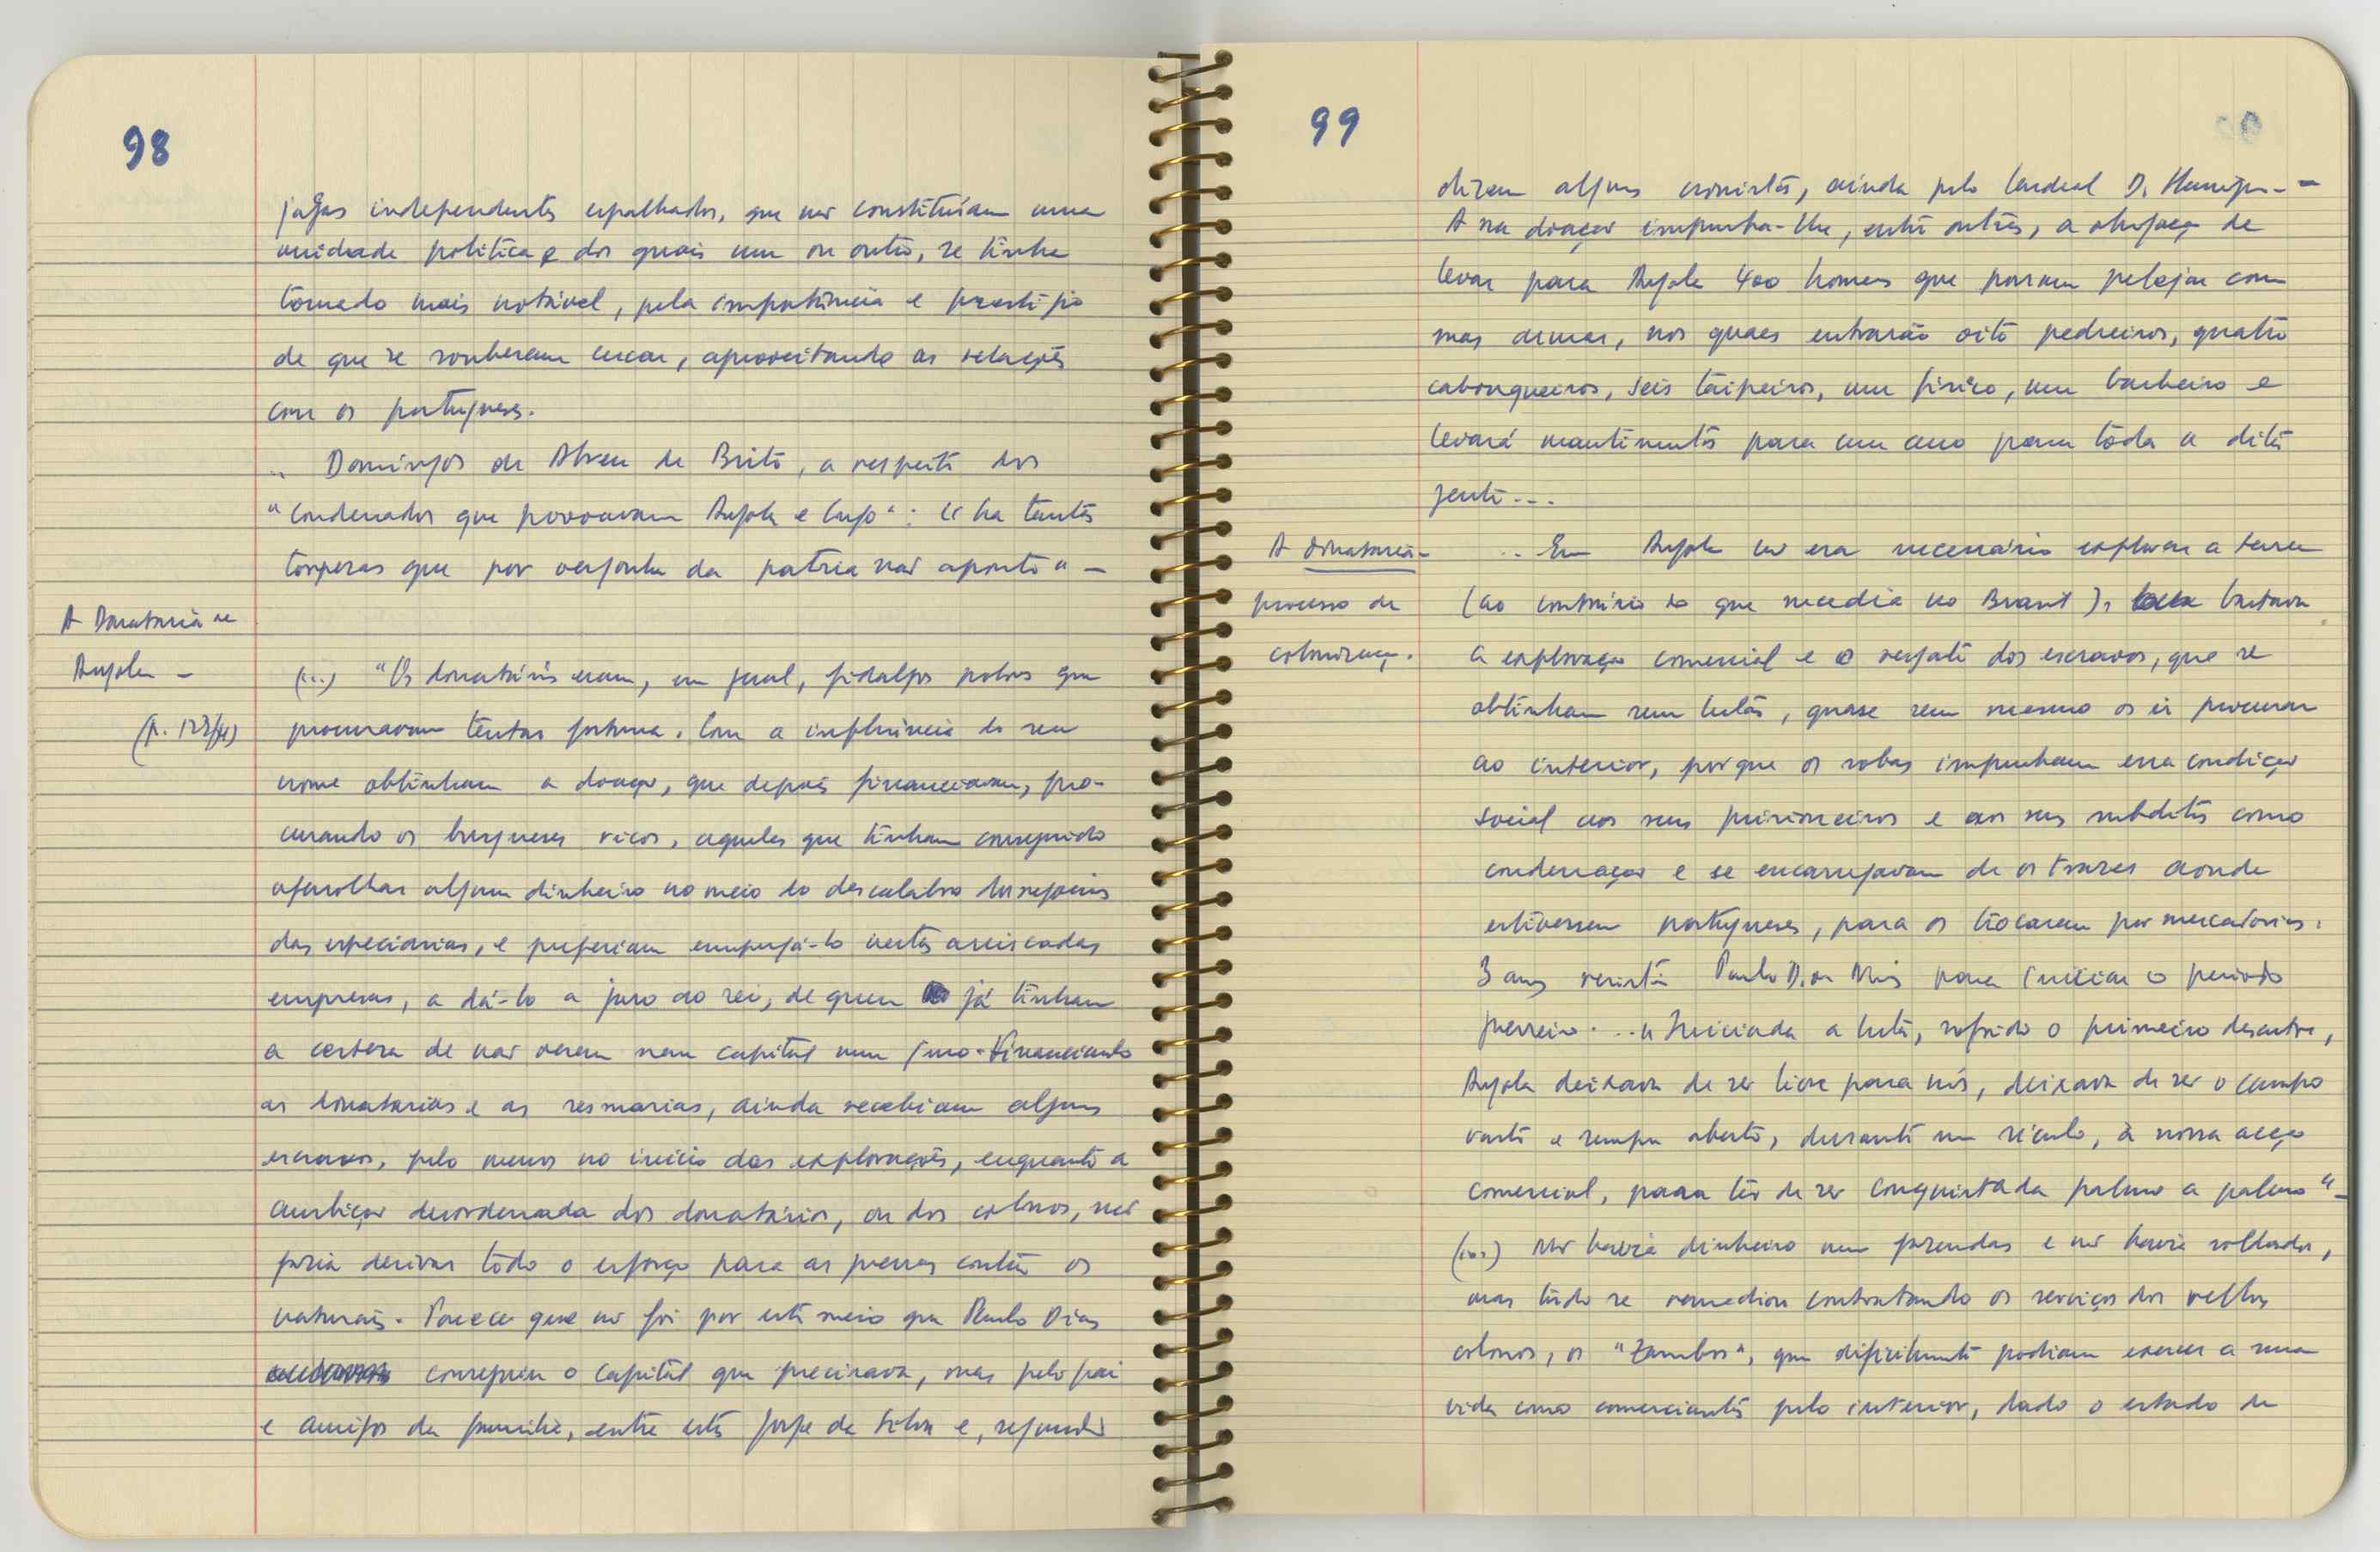 98
jagas independentes espalhados, que não constituíam uma
unidade politica e dos quais um ou outro, se tinha
tornado mais notável, pela importância e prestigio
de que se souberam cercar, aproveitando as relações
com os portugueses.
.. Domingos de Abreu de Brito, a respeito dos
"condenados que povoavam Angola e Congo": "E ha tantas
torpezas que por vergonha da patria não aponto" –
A Donataria de
Angola –
(p. 123/4)
(...) "Os donatários eram, em geral, fidalgos pobres que
procuravam tentar fortuna. Com a influência do seu
nome obtinham a doação, que depois financiavam, pro-
curando os burgueses ricos, aqueles que tinham conseguido
aferrolhar algum dinheiro no meio do descalabro dos negócios
das especiarias, e preferiam empregá-lo nestas arriscadas
empresas, a dá-lo a juro ao rei, de quem já tinham
a certeza de não verem nem capital nem juro. Financiando
as donatarias e as sesmarias, ainda recebiam alguns
escravos, pelo menos no inicio das explorações, enquanto a
ambição desordenada dos donatários, ou dos colonos, não
fazia derivar todo o esforço para as guerras contra os
naturais. Parece que não foi por este meio que Paulo Dias
conseguiu o capital que precisava, mas pelo pai
e amigos da familia, entre estes Jorge da Silva e, segundo
99
dizem alguns cronistas, ainda pelo Cardeal D. Henrique. –
A sua doação impunha-lhe, entre outras, a obrigação de
levar para Angola 400 homens que possam pelejar com
suas armas, nos quaes entrarão oito pedreiros, quatro
cabouqueiros, seis taipeiros, um fisico, um barbeiro e
levará mantimentos para um ano para toda a dita
gente...
A donataria –
processo de
colonização.
.. Em Angola não era necessário explorar a terra
(ao contrário do que sucedia no Brasil), bastava
a exploração comercial e o resgate dos escravos, que se
obtinham sem lutas, quase sem mesmo os ir procurar
ao interior, porque os sobas impunham essa condição
social aos seus prisioneiros e aos seus subditos como
condenação e se encarregavam de os trazer aonde
estivessem portugueses, para os trocarem por mercadorias.
3 anos resistiu Paulo D. de Novais para iniciar o periodo
guerreiro. .. "Iniciada a luta, sofrido o primeiro desastre,
Angola deixava de ser livre para nós, deixava de ser o campo
vasto e sempre aberto, durante um século, à nossa acção
comercial, para ter de ser conquistada palmo a palmo" –
(...) Não havia dinheiro nem fazendas e não havia soldados,
mas tudo se remediou contratando os serviços dos velhos
colonos, os "Zambos", que dificilmente podiam exercer a sua
vida como comerciantes pelo interior, dado o estado de